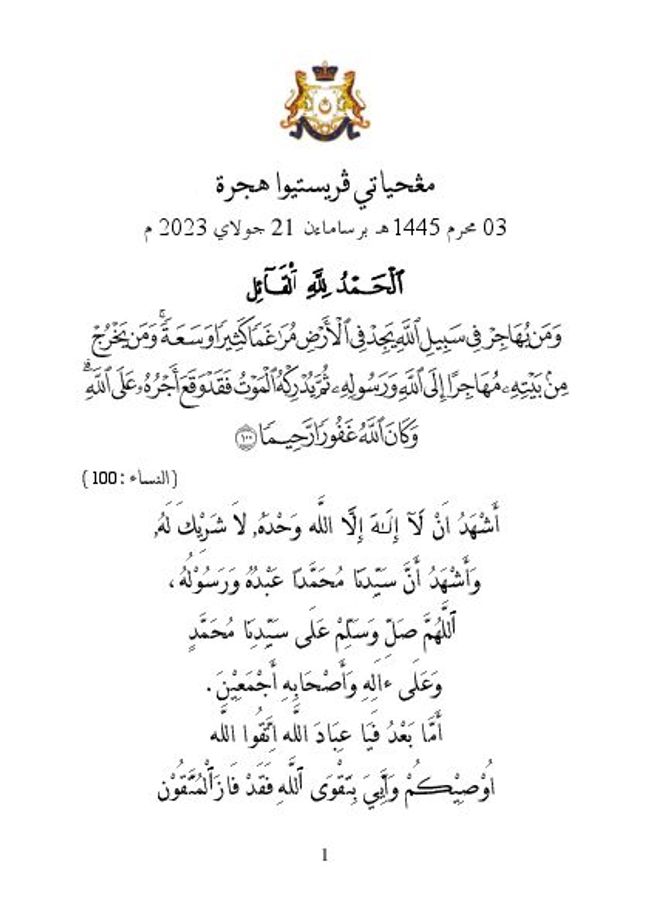 مڠحياتي ڤريستيوا هجرة
03 محرم 1445هـ برساماءن 21 جولاي 2023 م
اَلْحَمْدُ لِلّٰهِ الْقَآئِلِ
وَمَن يُهَاجِرْ فِى سَبِيلِ ٱللَّهِ يَجِدْ فِى ٱلْأَرْضِ مُرَٰغَمًا كَثِيرًا وَسَعَةً ۚ وَمَن يَخْرُجْ
مِنۢ بَيْتِهِۦ مُهَاجِرًا إِلَى ٱللَّهِ وَرَسُولِهِۦ ثُمَّ يُدْرِكْهُ ٱلْمَوْتُ فَقَدْ وَقَعَ أَجْرُهُۥ عَلَى ٱللَّهِ ۗ
وَكَانَ ٱللَّهُ غَفُورًا رَّحِيمًا ١٠٠
(النساء : 100 )
أَشْهَدُ اَنْ لَآ إِلٰـهَ إِلَّا اللّٰه وَحْدَهُ, لاَ شَرِيْكَ لَهُ,
وَأَشْهَدُ أَنَّ سَيِّدَنَا مُحَمَّدًا عَبْدُهُ وَرَسُوْلُهُ ،
اَللَّهُمَّ صَلِّ وَسَلِّمْ عَلَى سَيِّدِنَا مُحَمَّدٍ
وَعَلَى ءَالِهِ وَأَصْحَابِهِ أَجْمَعِيْنَ .
أَمَّا بَعْدُ فَيَا عِبَادَ اللّٰه اِتَّقُوا اللّٰه
اُوْصِيْكُمْ وَاِيَّايَ بِتَقْوَى اللّٰهِ فَقَدْ فَازَ الْمُتَّقُوْن
1